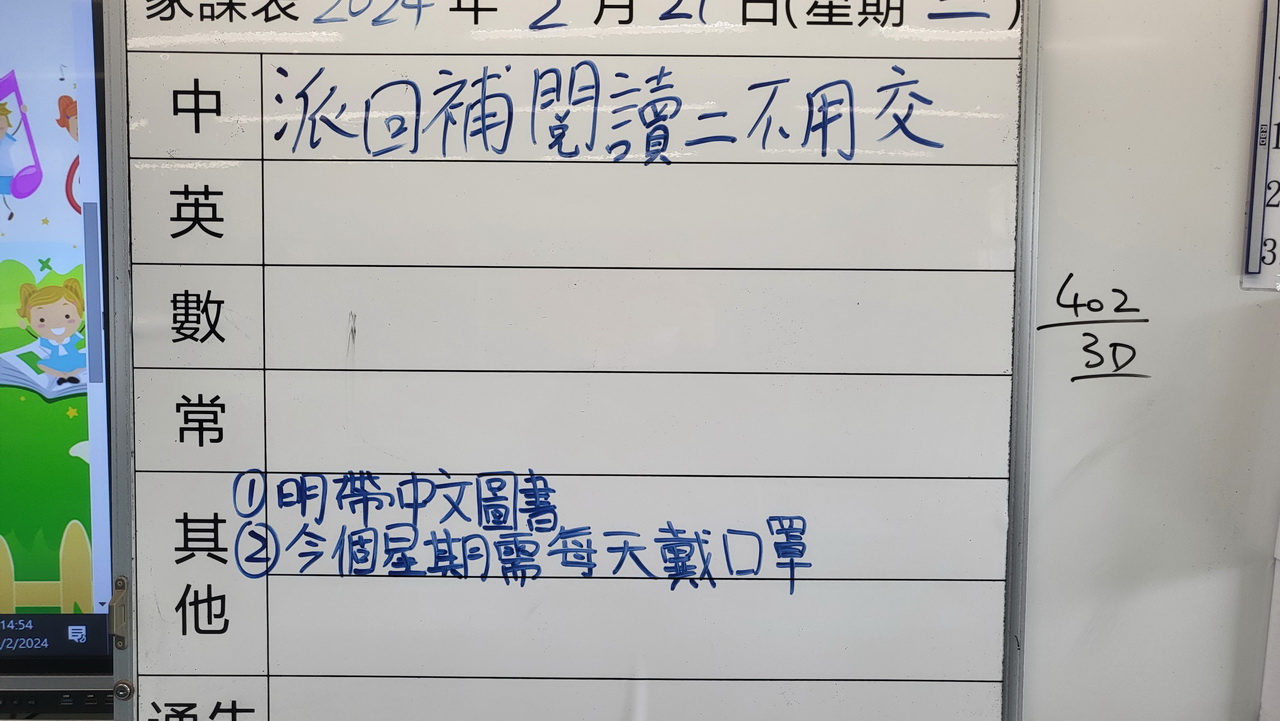 家課表 2024 年 2 月 日(星期 )
中 派回補閱讀二不用交
英
數
常
其他
①明帶中文圖書
②今個星期需每天戴口罩
通告
402
3D
1
2
3
14:54
/2/2024